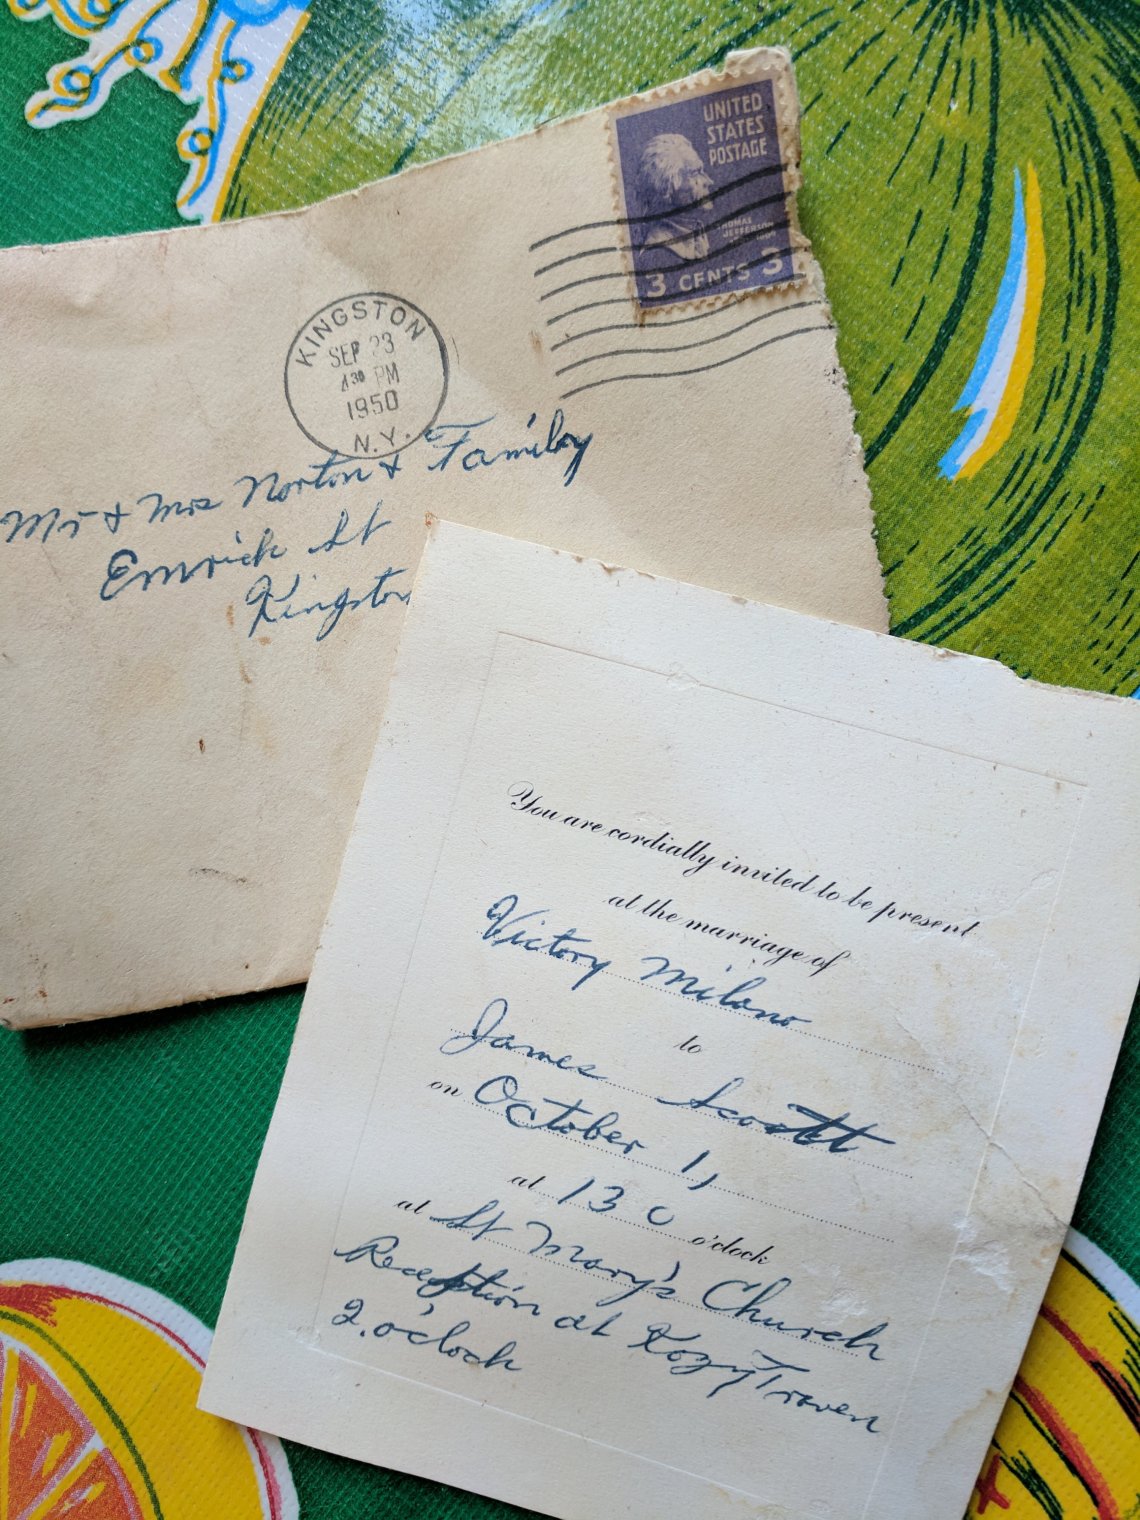 UNITED
STATES
POSTAGE
THOMAS
JEFFERSON
3 CENTS 3
KINGSTON
SEP 23
4 30 PM
1950
N.Y.
Mr & Mrs Norton & Family
Emrick St
Kingston
You are cordially invited to be present
at the marriage of
Victory Milano
to
James Scott
on October 1,
at 130 o'clock
at St Mary's Church
Reception at Kozy Traven
2. o'clock